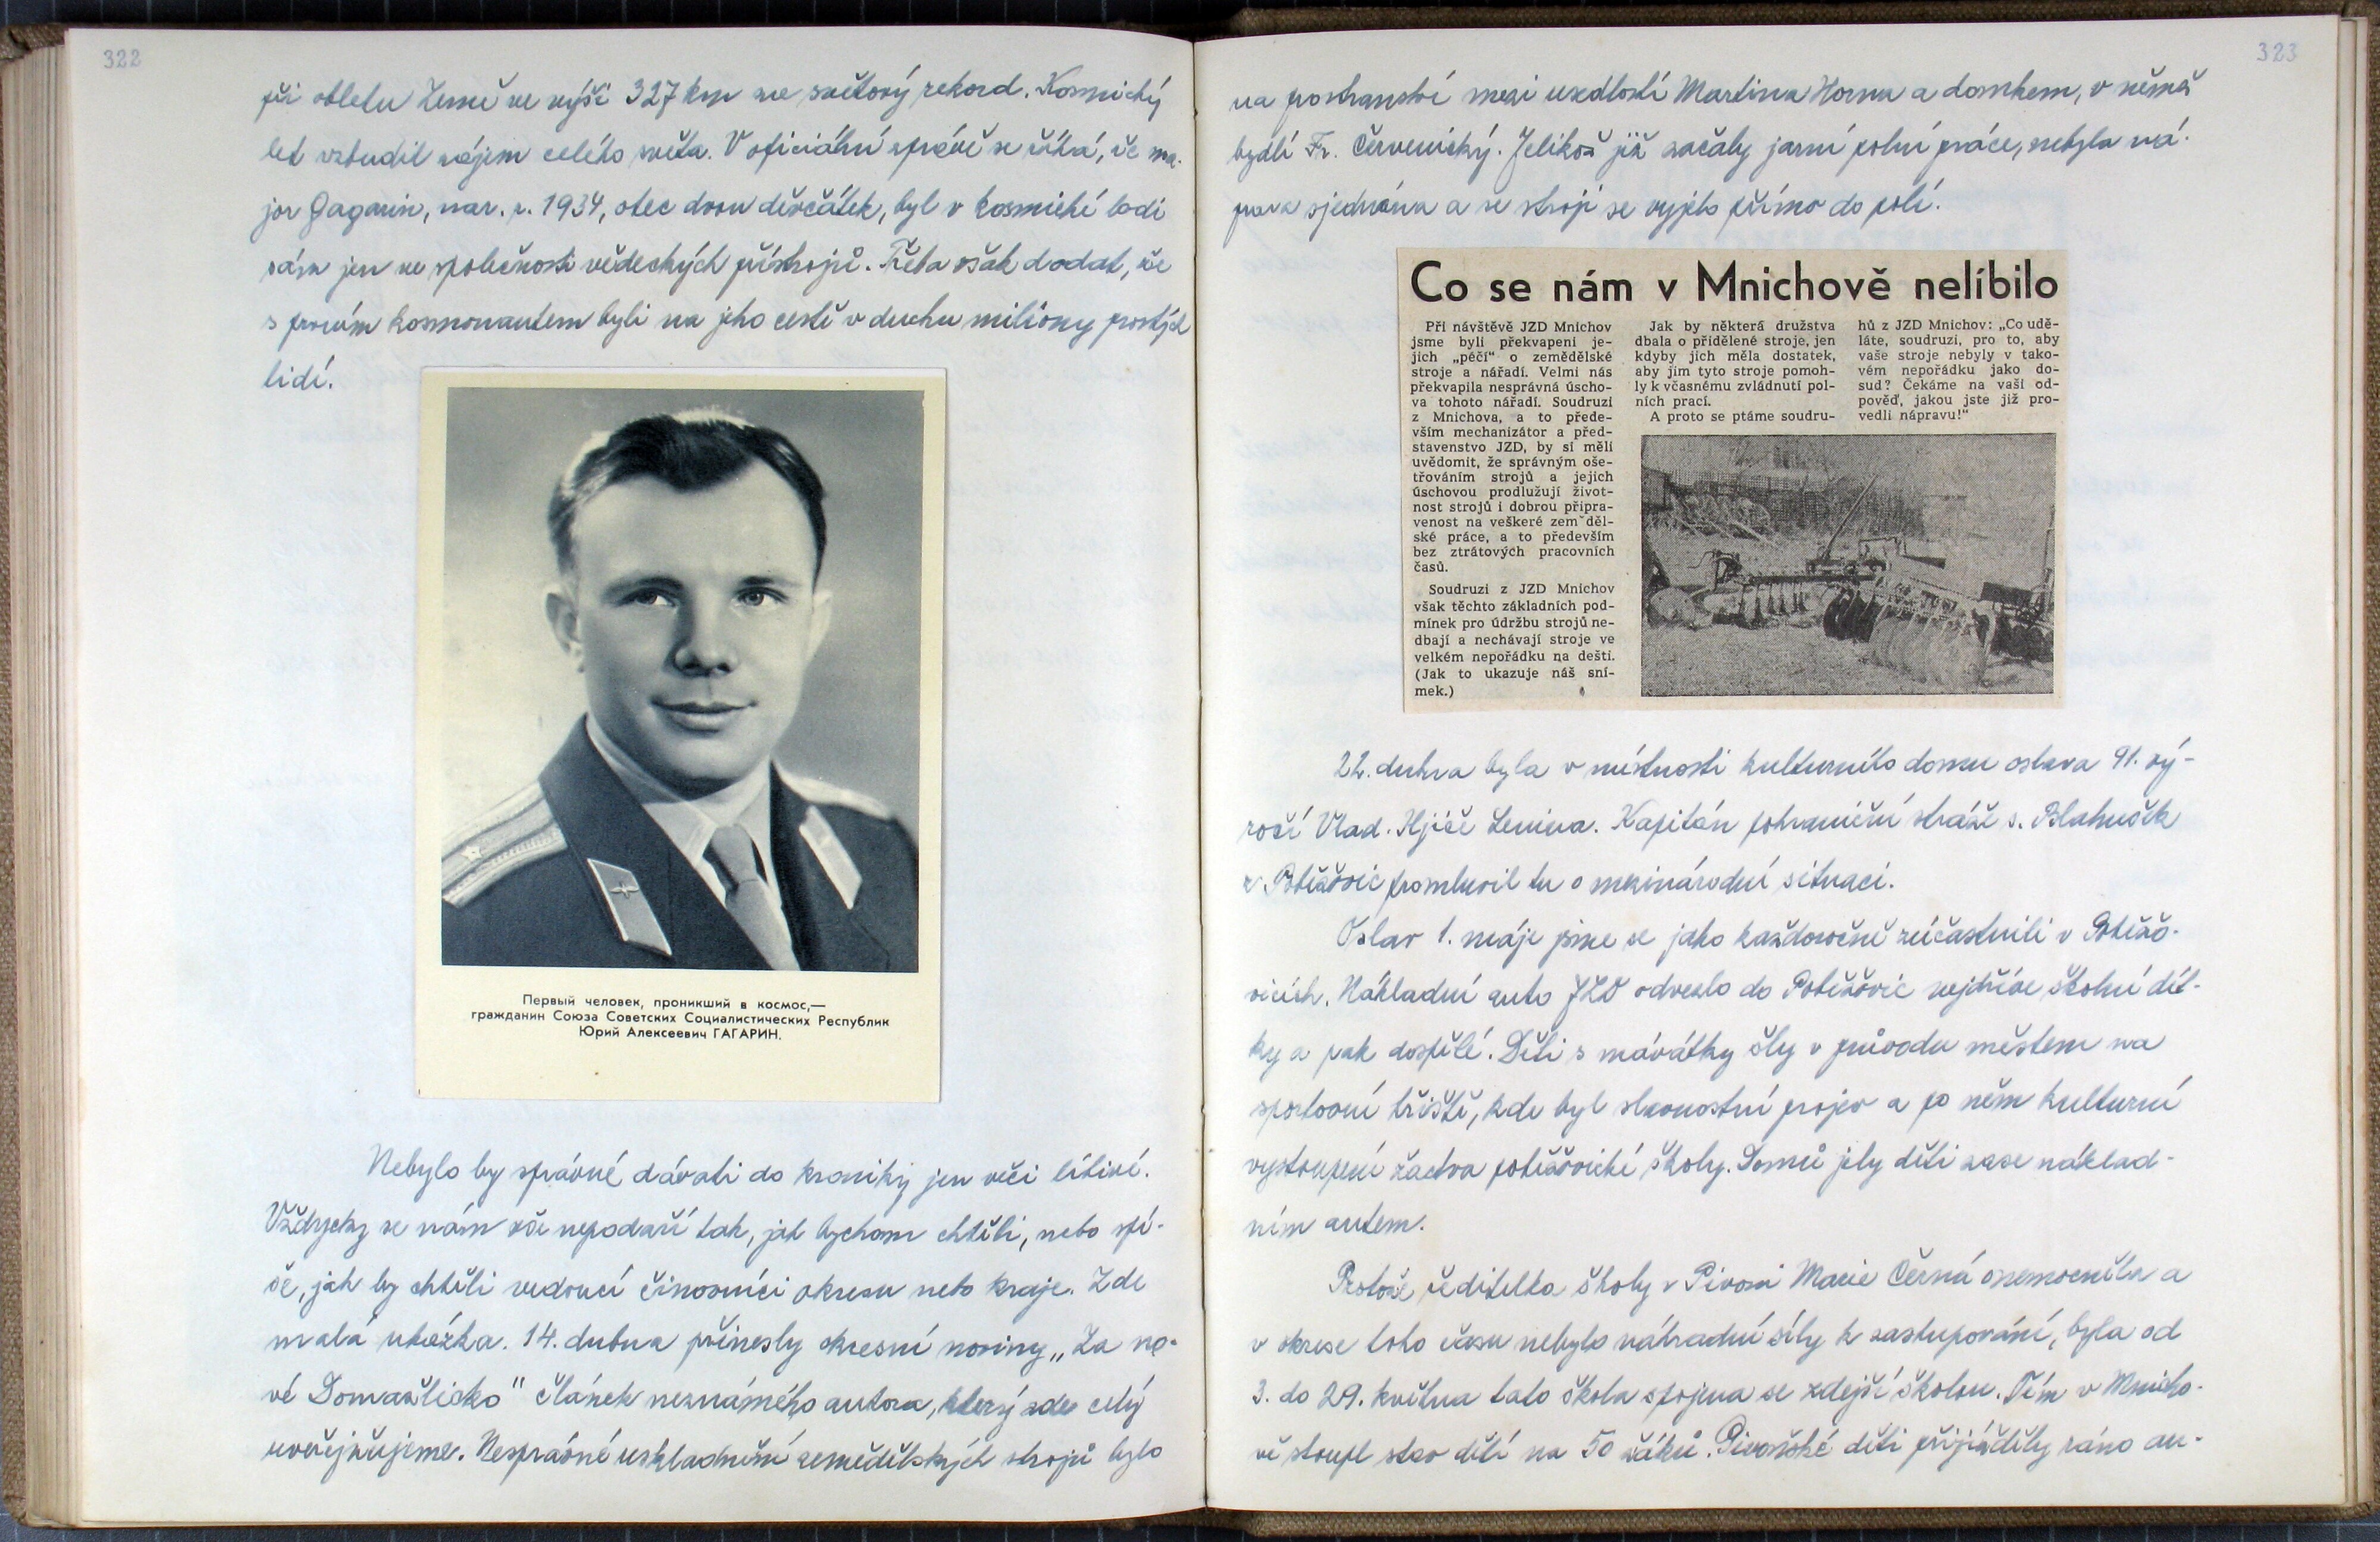 322
při obletu Země ve výši 327 km za světový rekord. Kosmický
let vzbudil zájem celého světa. V oficiální zprávě se říká, že ma-
jor Gagarin, nar. r. 1934, otec dvou děvčátek, byl v kosmické lodi
sám jen ve společnosti vědeckých přístrojů. Třeba však dodat, že
s prvním kosmonautem byli na jeho cestě v duchu milióny prostých
lidí.
Первый человек, проникший в космос,—
гражданин Союза Советских Социалистических Республик
Юрий Алексеевич ГАГАРИН.
Nebylo by správné dávati do kroniky jen věci líbivé.
Vždycky se nám vše nepodaří tak, jak bychom chtěli, nebo spí-
še, jak by chtěli vedoucí činovníci okresu nebo kraje. Zde
malá ukázka. 14. dubna přinesly okresní noviny „Za no-
vé Domažlicko" článek neznámého autora, který zde celý
uveřejňujeme. Nesprávné uskladnění zemědělských strojů bylo
323
na prostranství mezi usedlostí Martina Horna a domkem, v němž
bydlí Fr. Červenický. Jelikož již začaly jarní polní práce, nebyla ná-
prava sjednána a se stroji se vyjelo přímo do polí.
Co se nám v Mnichově nelíbilo
Při návštěvě JZD Mnichov
jsme byli překvapeni je-
jich „péčí“ o zemědělské
stroje a nářadí. Velmi nás
překvapila nesprávná úscho-
va tohoto nářadí. Soudruzi
z Mnichova, a to přede-
vším mechanizátor a před-
stavenstvo JZD, by si měli
uvědomit, že správným oše-
třováním strojů a jejich
úschovou prodlužují život-
nost strojů i dobrou připra-
venost na veškeré zem˘děl-
ské práce, a to především
bez ztrátových pracovních
časů.
Soudruzi z JZD Mnichov
však těchto základních pod-
mínek pro údržbu strojů ne-
dbají a nechávají stroje ve
velkém nepořádku na dešti.
(Jak to ukazuje náš sní-
mek.)
Jak by některá družstva
dbala o přidělené stroje, jen
kdyby jich měla dostatek,
aby jim tyto stroje pomoh-
ly k včasnému zvládnutí pol-
ních prací.
A proto se ptáme soudru-
hů z JZD Mnichov: „Co udě-
láte, soudruzi, pro to, aby
vaše stroje nebyly v tako-
vém nepořádku jako do-
sud? Čekáme na vaši od-
pověď, jakou jste již pro-
vedli nápravu!“
22. dubna byla v místnosti kulturního domu oslava 91. vý-
ročí Vlad. Iljiče Lenina. Kapitán pohraniční stráže s. Blahušek
z Poběžovic promluvil tu o mezinárodní situaci.
Oslav 1. máje jsme se jako každoročně zúčastnili v Poběžo-
vicích. Nákladní auto JZD odvezlo do Poběžovic nejdříve školní dít-
ky a pak dospělé. Děti s mávátky šly v průvodu městem na
sportovní hřiště, kde byl slavnostní projev a po něm kulturní
vystoupení žactva poběžovické školy. Domů jely děti zase náklad-
ním autem.
Protože ředitelka školy v Pivoni Marie Černá onemocněla a
v okrese toho času nebylo náhradní síly k zastupování, byla od
3. do 29. května tato škola spojena se zdejší školou. Tím v Mnicho-
vě stoupl stav dětí na 50 žáků. Pivoňské děti přijížděly ráno au-